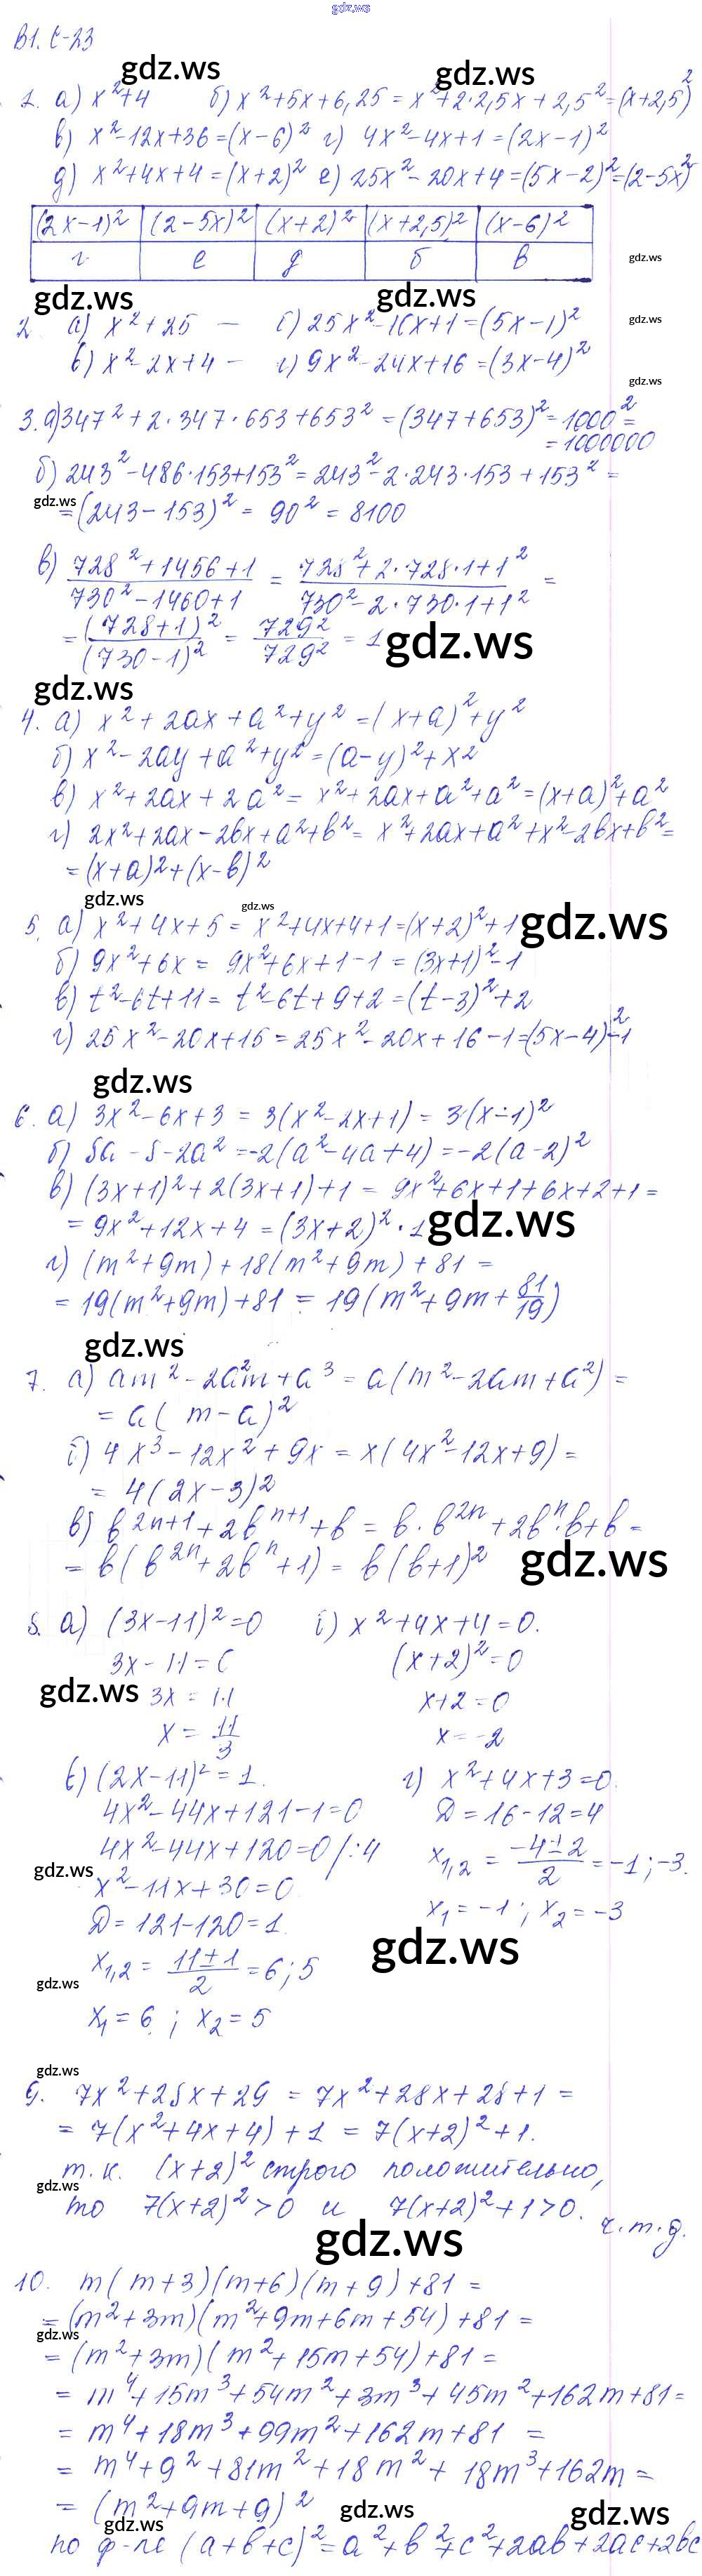 gdz.ws
В1. С-23
gdz.ws gdz.ws
1. а) x²+4 б) x²+5x+6,25 = x²+2·2,5x+2,5² = (x+2,5)²
в) x²-12x+36 = (x-6)² г) 4x²-4x+1 = (2x-1)²
д) x²+4x+4 = (x+2)² е) 25x²-20x+4 = (5x-2)² = (2-5x)²
(2x-1)² (2-5x)² (x+2)² (x+2,5)² (x-6)²
г е д б в
gdz.ws
gdz.ws gdz.ws
2. а) x²+25 — б) 25x²-10x+1 = (5x-1)²
gdz.ws
в) x²-2x+4 - г) 9x²-24x+16 = (3x-4)²
gdz.ws
3. а) 347²+2·347·653+653² = (347+653)² = 1000² =
= 1000000
б) 243²-486·153+153² = 243²-2·243·153+153² =
gdz.ws
= (243-153)² = 90² = 8100
в) 728²+1456+1 / 730²-1460+1 = 728²+2·728·1+1² / 730²-2·730·1+1² =
= (728+1)² / (730-1)² = 729² / 729² = 1
gdz.ws
gdz.ws
4. а) x²+2ax+a²+y² = (x+a)²+y²
б) x²-2ay+a²+y² = (a-y)²+x²
в) x²+2ax+2a² = x²+2ax+a²+a² = (x+a)²+a²
г) 2x²+2ax-2bx+a²+b² = x²+2ax+a²+x²-2bx+b² =
= (x+a)²+(x-b)²
gdz.ws gdz.ws
5. а) x²+4x+5 = x²+4x+4+1 = (x+2)²+1
gdz.ws
б) 9x²+6x = 9x²+6x+1-1 = (3x+1)²-1
в) t²-6t+11 = t²-6t+9+2 = (t-3)²+2
г) 25x²-20x+15 = 25x²-20x+16-1 = (5x-4)²-1
gdz.ws
6. а) 3x²-6x+3 = 3(x²-2x+1) = 3(x-1)²
б) 8a-8-2a² = -2(a²-4a+4) = -2(a-2)²
в) (3x+1)²+2(3x+1)+1 = 9x²+6x+1+6x+2+1 =
= 9x²+12x+4 = (3x+2)²·1
gdz.ws
г) (m²+9m)+18(m²+9m)+81 =
= 19(m²+9m)+81 = 19(m²+9m+81/19)
gdz.ws
7. а) am²-2a²m+a³ = a(m²-2am+a²) =
= a(m-a)²
б) 4x³-12x²+9x = x(4x²-12x+9) =
= 4(2x-3)²
в) b²ⁿ⁺¹+2bⁿ⁺¹+b = b·b²ⁿ+2bⁿ·b+b =
= b(b²ⁿ+2bⁿ+1) = b(b+1)²
gdz.ws
8. а) (3x-11)²=0 б) x²+4x+4=0.
3x-11=0 (x+2)²=0
gdz.ws
3x = 11 x+2=0
x = 11/3 x=-2
в) (2x-11)²=1. г) x²+4x+3=0.
4x²-44x+121-1=0 Д=16-12=4
4x²-44x+120=0 /:4 x₁,₂ = -4±2 / 2 = -1;-3.
gdz.ws
x²-11x+30=0 x₁=-1; x₂=-3
Д=121-120=1.
gdz.ws
x₁,₂ = 11±1 / 2 = 6;5
gdz.ws
x₁=6; x₂=5
gdz.ws
9. 7x²+28x+29 = 7x²+28x+28+1 =
= 7(x²+4x+4)+1 = 7(x+2)²+1.
т.к. (x+2)² строго положительно,
gdz.ws
то 7(x+2)²>0 и 7(x+2)²+1>0.
ч.т.д.
gdz.ws
10. m(m+3)(m+6)(m+9)+81 =
= (m²+3m)(m²+9m+6m+54)+81 =
gdz.ws
= (m²+3m)(m²+15m+54)+81 =
= m⁴+15m³+54m²+3m³+45m²+162m+81 =
= m⁴+18m³+99m²+162m+81 =
= m⁴+9²+81m²+18m²+18m³+162m =
= (m²+9m+9)²
gdz.ws gdz.ws gdz.ws
по ф-ле (a+b+c)² = a²+b²+c²+2ab+2ac+2bc